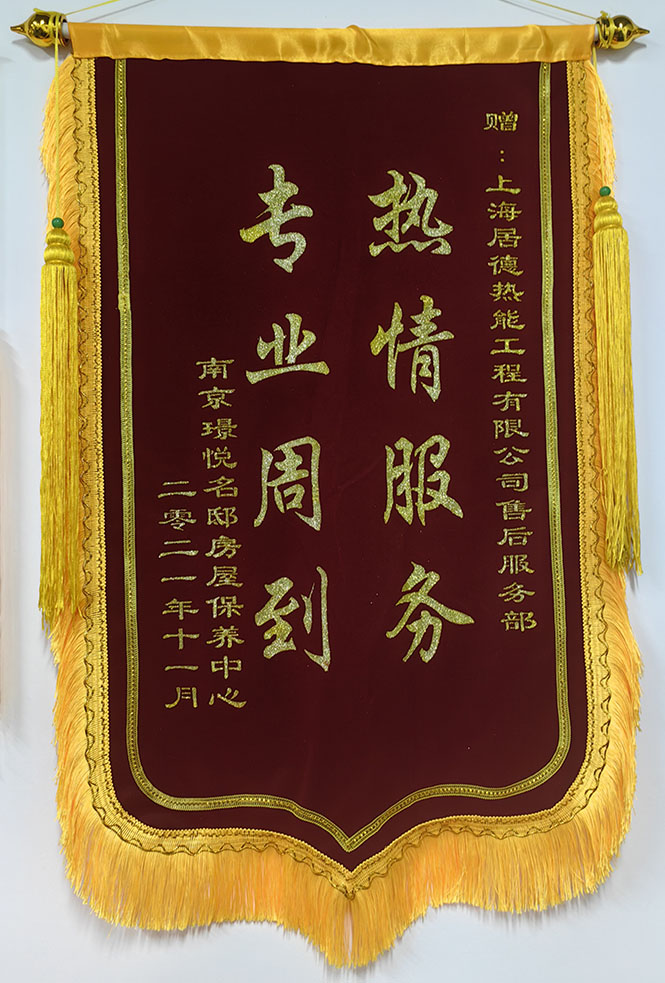 赠：上海居德热能工程有限公司售后服务部
热情服务
专业周到
南京璟悦名邸房屋保养中心
二零二一年十一月